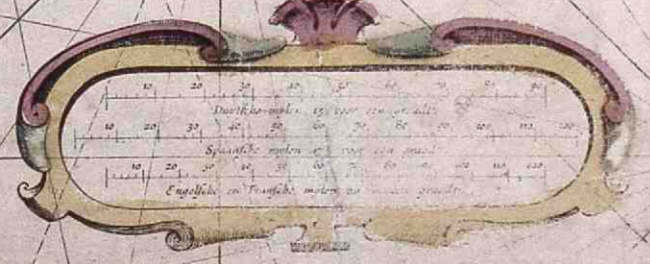 10 20 30 40 50 60 70 80 90
Duytsche mylen 15 voor een graedt
10 20 30 40 50 60 70 80 90 100
Spaensche mylen 17 voor een graed
10 20 30 40 50 60 70 80 90 100 110
Engelsche en Fransche mylen 20 een graedt